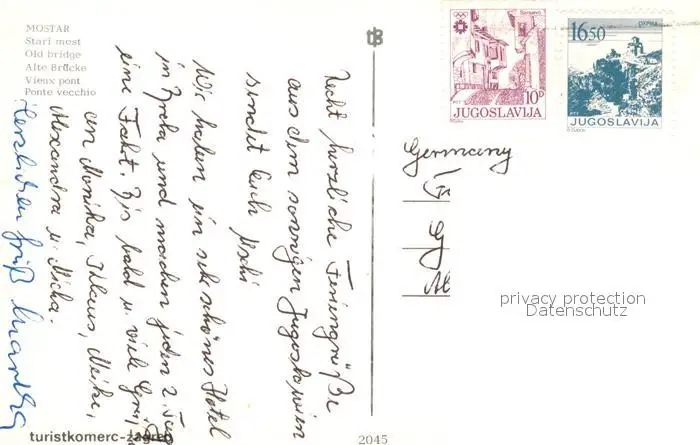 MOSTAR
Stari most
Old bridge
Alte Brücke
Vieux pont
Ponte vecchio
Recht herzliche Feriengrüße
aus dem sonnigen Jugoslawien
sendet Euch Uschi
Wir haben ein sehr schönes Hotel
in und machen jeden 2. Tag
eine Fahrt. Bis bald u. viele Grüße
an Monika, Klaus, Meike,
Alexandra u. Micha.
Herzlichen Gruß
turistkomerc-zagreb
2045
Sarajevo
PTT
10D
JUGOSLAVIJA
OHRID
1650
PTT
JUGOSLAVIJA
Germany
privacy protection
Datenschutz